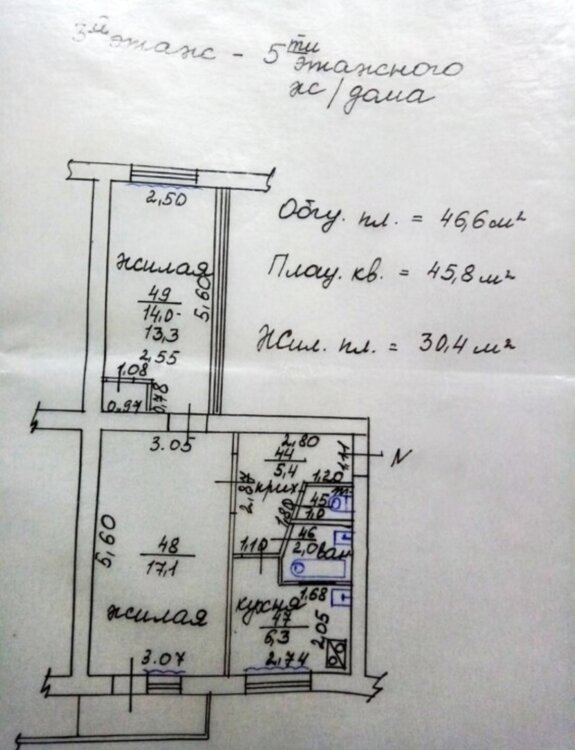 3й этаж - 5ти
этажного
ж/дома
Общ. пл. = 46,6 м²
Площ. кв. = 45,8 м²
Жил. пл. = 30,4 м²
2,50
жилая
49
14,0
13,3
5,60
2,55
1,08
0,97
0,78
3.05
2,80
44
5,4
1,11
N
2,87
крих
1,20
45
1,0
1,80
46
2,0
ван
1,10
5,60
48
17,1
жилая
кухня
47
6,3
1,68
2,05
3.07
2,74